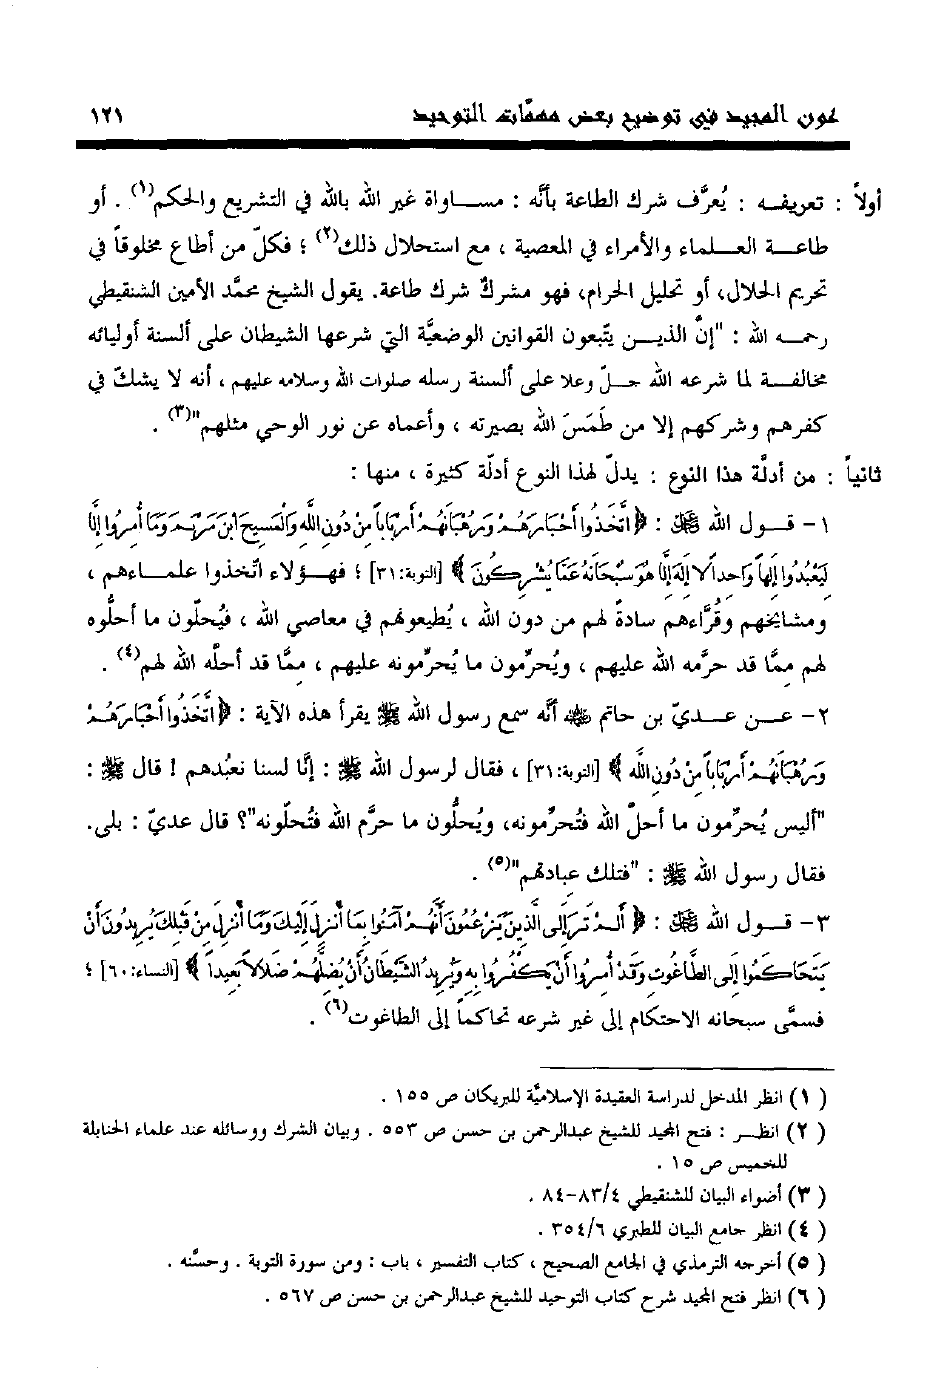 عون المجيد في توضيح بعض مهمَّات التوحيد ١٢١
أولاً : تعريفه : يُعرَّف شرك الطاعة بأنَّه : مساواة غير الله بالله في التشريع والحكم(١) . أو
طاعة العلماء والأمراء في المعصية ، مع استحلال ذلك(٢) ؛ فكلّ من أطاع مخلوقاً في
تحريم الحلال، أو تحليل الحرام، فهو مشركٌ شرك طاعة. يقول الشيخ محمَّد الأمين الشنقيطي
رحمه الله : "إنَّ الذين يتّبعون القوانين الوضعيَّة التي شرعها الشيطان على ألسنة أوليائه
مخالفة لما شرعه الله جلّ وعلا على ألسنة رسله صلوات الله وسلامه عليهم ، أنه لا يشكّ في
كفرهم وشركهم إلا من طَمَسَ الله بصيرته ، وأعماه عن نور الوحي مثلهم"(٣) .
ثانياً : من أدلَّة هذا النوع : يدلّ لهذا النوع أدلّة كثيرة ، منها :
١- قول الله ﷻ : ﴿ اتَّخَذُوا أَحْبَارَهُمْ وَرُهْبَانَهُمْ أَرْبَاباً مِنْ دُونِ اللَّهِ وَالْمَسِيحَ ابْنَ مَرْيَمَ وَمَا أُمِرُوا إِلَّا
لِيَعْبُدُوا إِلَهاً وَاحِداً لا إِلَهَ إِلَّا هُوَ سُبْحَانَهُ عَمَّا يُشْرِكُونَ ﴾ [التوبة:٣١] ؛ فهؤلاء اتّخذوا علماءهم ،
ومشايخهم وقُرَّاءهم سادةً لهم من دون الله ، يُطيعونهم في معاصي الله ، فيُحلّون ما أحلُّوه
لهم ممَّا قد حرَّمه الله عليهم ، ويُحرِّمون ما يُحرِّمونه عليهم ، ممَّا قد أحلّه الله لهم(٤) .
٢- عن عديّ بن حاتم ﷺ أنَّه سمع رسول الله ﷺ يقرأ هذه الآية : ﴿ اتَّخَذُوا أَحْبَارَهُمْ
وَرُهْبَانَهُمْ أَرْبَاباً مِنْ دُونِ اللَّهِ ﴾ [التوبة:٣١] ، فقال لرسول الله ﷺ : إنَّا لسنا نعبُدهم ! قال ﷺ :
"أليس يُحرِّمون ما أحلّ الله فتُحرِّمونه، ويُحلُّون ما حرَّم الله فتُحلّونه"؟ قال عديّ : بلى.
فقال رسول الله ﷺ : "فتلك عبادتهم"(٥) .
٣- قول الله ﷻ : ﴿ أَلَمْ تَرَ إِلَى الَّذِينَ يَزْعُمُونَ أَنَّهُمْ آمَنُوا بِمَا أُنْزِلَ إِلَيْكَ وَمَا أُنْزِلَ مِنْ قَبْلِكَ يُرِيدُونَ أَنْ
يَتَحَاكَمُوا إِلَى الطَّاغُوتِ وَقَدْ أُمِرُوا أَنْ يَكْفُرُوا بِهِ وَيُرِيدُ الشَّيْطَانُ أَنْ يُضِلَّهُمْ ضَلالاً بَعِيداً ﴾ [النساء:٦٠] ؛
فسمَّى سبحانه الاحتكام إلى غير شرعه تحاكماً إلى الطاغوت(٦) .
(١) انظر المدخل لدراسة العقيدة الإسلاميَّة للبريكان ص ١٥٥ .
(٢) انظر : فتح المجيد للشيخ عبدالرحمن بن حسن ص ٥٥٣ . وبيان الشرك ووسائله عند علماء الحنابلة
للخميس ص ١٥ .
(٣) أضواء البيان للشنقيطي ٨٣/٤-٨٤ .
(٤) انظر جامع البيان للطبري ٣٥٤/٦ .
(٥) أخرجه الترمذي في الجامع الصحيح ، كتاب التفسير ، باب : ومن سورة التوبة . وحسَّنه .
(٦) انظر فتح المجيد شرح كتاب التوحيد للشيخ عبدالرحمن بن حسن ص ٥٦٧ .